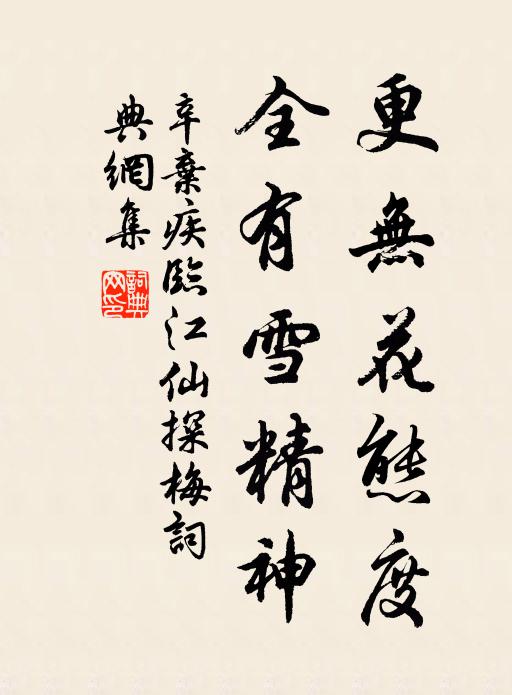 更無花態度
全有雪精神
辛棄疾臨江仙探梅詞
典網集
詞典
网印